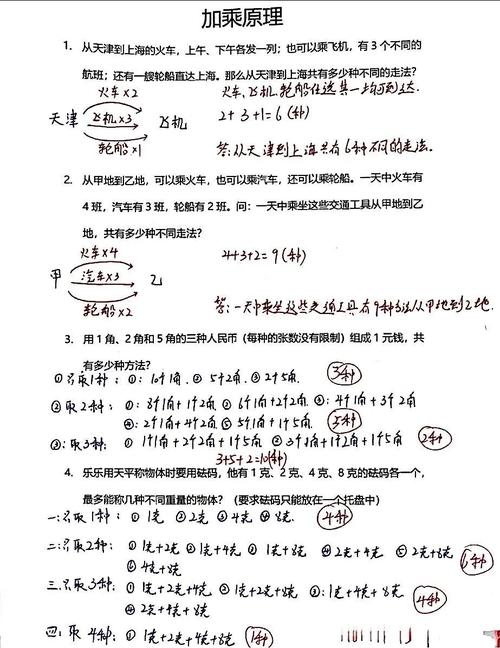 加乘原理
1. 从天津到上海的火车，上午、下午各发一列；也可以乘飞机，有 3 个不同的
航班；还有一艘轮船直达上海。那么从天津到上海共有多少种不同的走法？
火车×2 火车、飞机、轮船任选其一均可到达.
天津 飞机×3 飞机 2+3+1=6(种)
轮船×1 答:从天津到上海共有6种不同的走法.
2. 从甲地到乙地，可以乘火车，也可以乘汽车，还可以乘轮船。一天中火车有
4 班，汽车有 3 班，轮船有 2 班。问：一天中乘坐这些交通工具从甲地到乙
地，共有多少种不同走法？
火车×4 4+3+2=9(种)
甲 汽车×3 乙
轮船×2 答:一天中乘坐这些交通工具有9种方法从甲地到乙地.
3. 用 1 角、2 角和 5 角的三种人民币（每种的张数没有限制）组成 1 元钱，共
有多少种方法？
①只取1种: ①: 10个1角. ② 5个2角. ③ 2个5角. 3种
②取2种: ①: 8个1角+1个2角 ② 6个1角+2个2角 ③: 4个1角+3个2角
④: 2个1角+4个2角 ⑤ 5个1角+1个5角. 5种
③: 取3种: ① 1个1角+2个2角+1个5角 ② 3个1角+1个2角+1个5角 2种
3+5+2=10(种)
4. 乐乐用天平称物体时要用砝码，他有 1 克、2 克、4 克、8 克的砝码各一个，
最多能称几种不同重量的物体？（要求砝码只能放在一个托盘中）
一:只取1种: ① 1克 ② 2克 ③ 4克 ④ 8克. 4种
二:只取2种: ① 1克+2克 ② 1克+4克 ③ 1克+8克 ④ 2克+4克 ⑤ 2克+8克
⑥ 4克+8克 6种
三.只取3种: ① 1克+2克+4克 ② 1克+2克+8克 ③: 1克+4克+8克
④ 2克+4克+8克 4种
四: 取4种: ① 1克+2克+4克+8克 1种